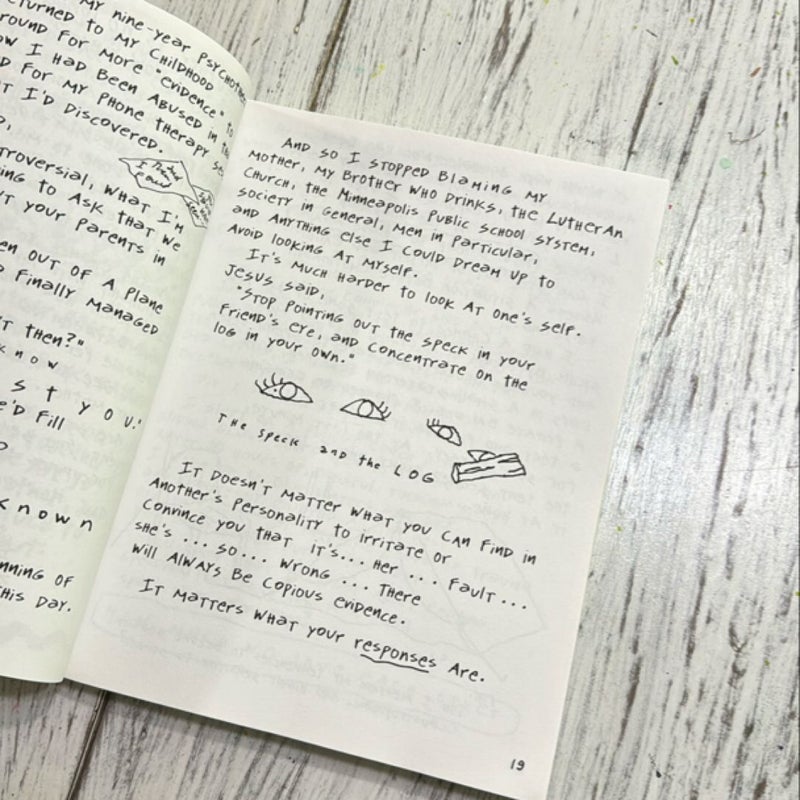 MY NINE-YEAR PSYCHOTHER
TURNED TO MY CHILDHOOD
ROUND FOR MORE "EVIDENCE" TO
OW I HAD BEEN ABUSED IN THE
D FOR MY PHONE THERAPY SE
T I'D DISCOVERED.
TROVERSIAL, WHAT I'M
ING TO ASK THAT WE
T YOUR PARENTS IN
EN OUT OF A PLANE
D FINALLY MANAGED
T THEN?"
KNOW
ST YOU."
E'D FILL
KNOWN
NNING OF
THIS DAY.
AND SO I STOPPED BLAMING MY
MOTHER, MY BROTHER WHO DRINKS, THE LUTHERAN
CHURCH, THE MINNEAPOLIS PUBLIC SCHOOL SYSTEM,
SOCIETY IN GENERAL, MEN IN PARTICULAR,
AND ANYTHING ELSE I COULD DREAM UP TO
AVOID LOOKING AT MYSELF.
IT'S MUCH HARDER TO LOOK AT ONE'S SELF.
JESUS SAID,
"STOP POINTING OUT THE SPECK IN YOUR
FRIEND'S EYE, AND CONCENTRATE ON THE
LOG IN YOUR OWN."
THE SPECK AND THE LOG
IT DOESN'T MATTER WHAT YOU CAN FIND IN
ANOTHER'S PERSONALITY TO IRRITATE OR
CONVINCE YOU THAT IT'S... HER ... FAULT ...
SHE'S ... SO... WRONG ... THERE
WILL ALWAYS BE COPIOUS EVIDENCE.
IT MATTERS WHAT YOUR RESPONSES ARE.
19